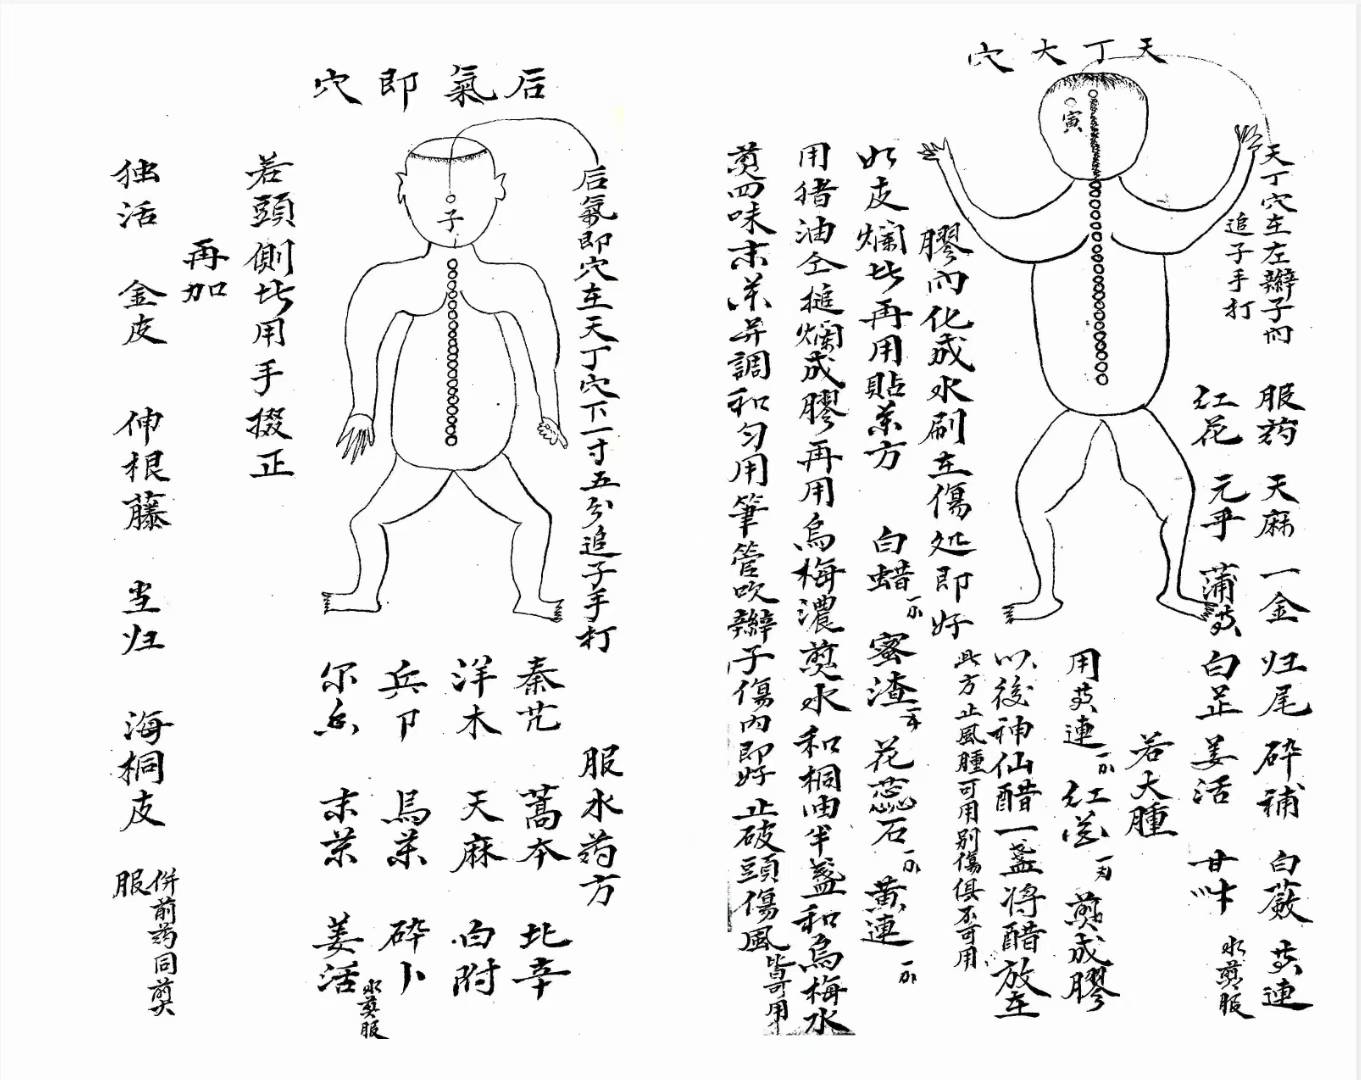 天丁大穴
寅
天丁穴在左辮子内
追子手打
服药 天麻 一金 归尾 碎補 白蔹 黄連
红花 元乎 蒲黄 白芷 姜活 甘草 水煎服
若大腫
用黄連 红花 煎成膠
以後神仙醋一盏将醋放在
此方止風腫可用别傷俱不可用
膠内化成水刷在傷处即好
如皮爛此再用貼茶方 白蜡 蜜渣 花蕊石 黄連
用猪油仝搥爛成膠再用烏梅濃煎水和桐油半盏和烏梅水
黄四味末茶并調和匀用筆管吹辮子傷内即好止破頭傷風皆可用
后氣即穴
子
后氣即穴在天丁穴下一寸五分追子手打
服水药方
秦艽 蒿本 北辛
洋木 天麻 白附
兵卩 烏茶 碎卜
末茶 姜活 水煎服
若頭側此用手掇正
再加
独活 金皮 伸根藤 当归 海桐皮 服
併前药同煎